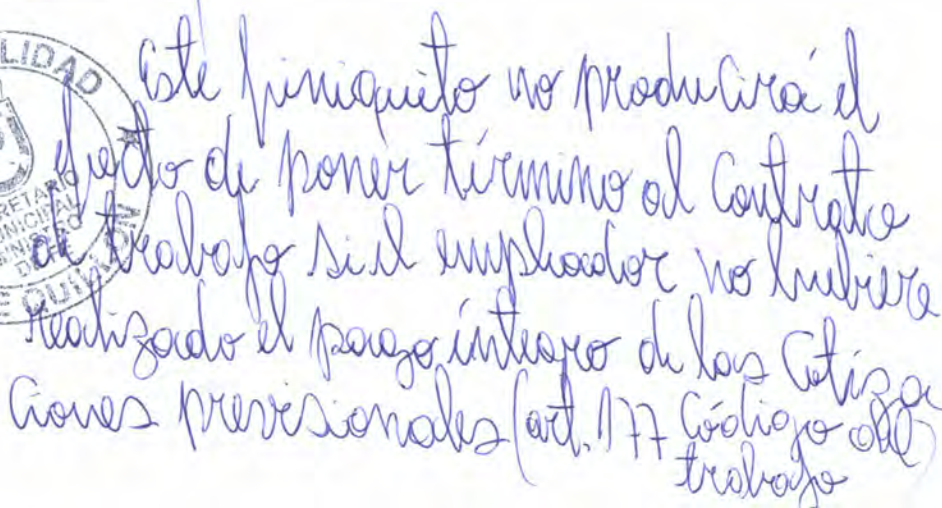 LIDAD
Este finiquito no producirá el
efecto de poner término al Contrato
de trabajo si el empleador no hubiere
realizado el pago íntegro de las Cotiza
ciones previsionales (art. 177 Código del)
trabajo
SECRETARIO
MUNICIPAL
DE QUI